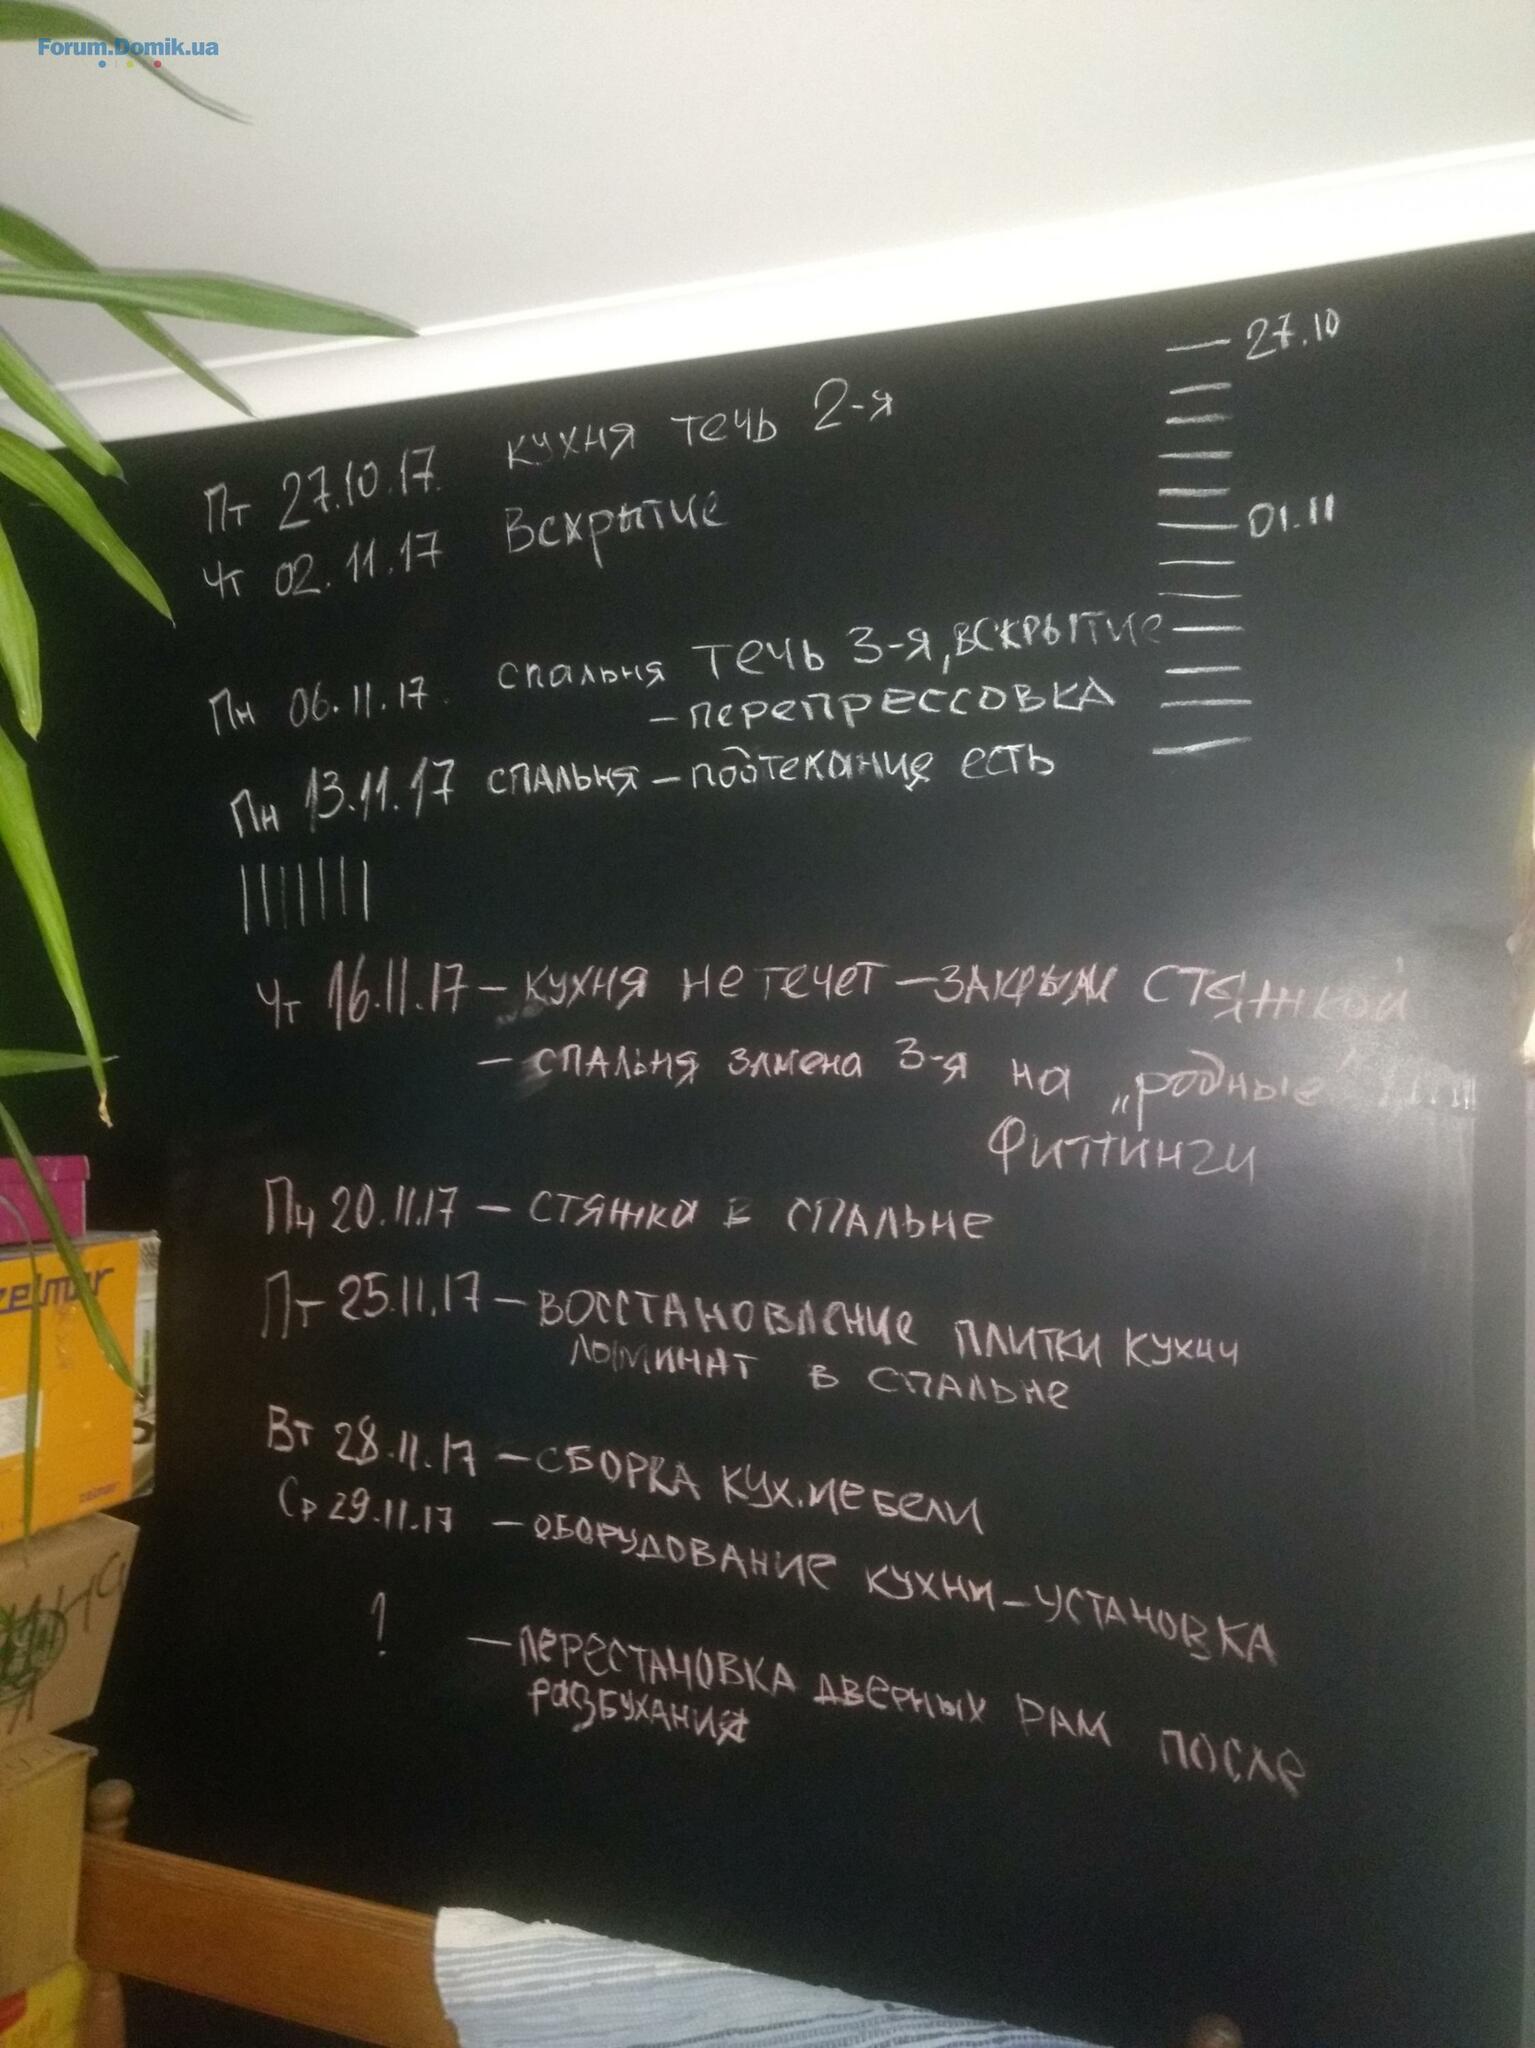 Forum.Domik.ua
27.10
Пт 27.10.17. кухня течь 2-я
01.11
Чт 02.11.17 Вскрытие
Пн 06.11.17. спальня течь 3-я, вскрытие
– перепрессовка
Пн 13.11.17 спальня – подтекание есть
Чт 16.11.17 – кухня не течет – закрыли стяжкой
– спальня замена 3-я на „родные"
Фиттинги
Пн 20.11.17 – стяжка в спальне
Пт 25.11.17 – восстановление плитки кухни
ломинат в спальне
Вт 28.11.17 – сборка кух. мебели
Ср 29.11.17 – оборудование кухни – установка
? – перестановка дверных рам после
разбухания
zelmer
zelmer